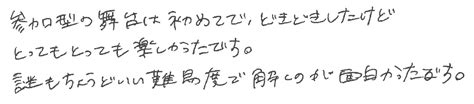 参加型の舞台は初めてで、どきどきしたけど
とってもとっても楽しかったです。
謎もちょうどいい難易度で解くのが面白かったです。